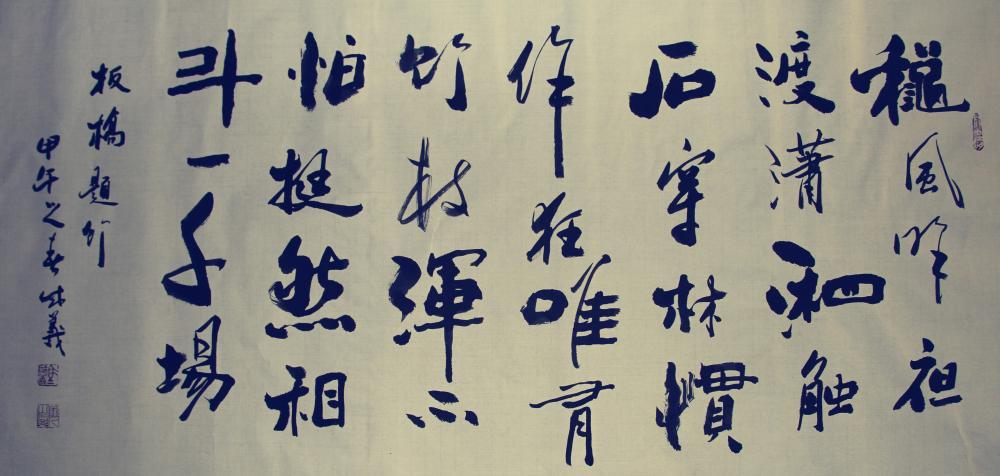 龝風昨夜
渡瀟湘触
石穿林慣
作狂唯有
竹枝渾不
怕挺然相
斗一千場
板橋題竹
甲午之春成義